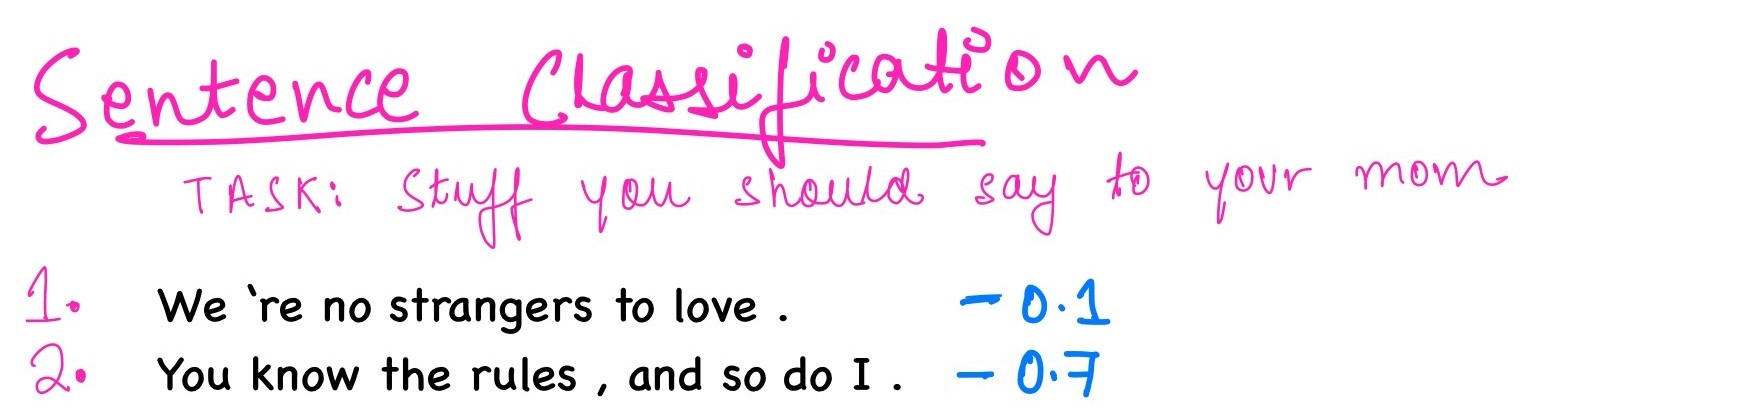 Sentence Classification
TASK: Stuff you should say to your mom
1. We 're no strangers to love . - 0.1
2. You know the rules , and so do I . - 0.7